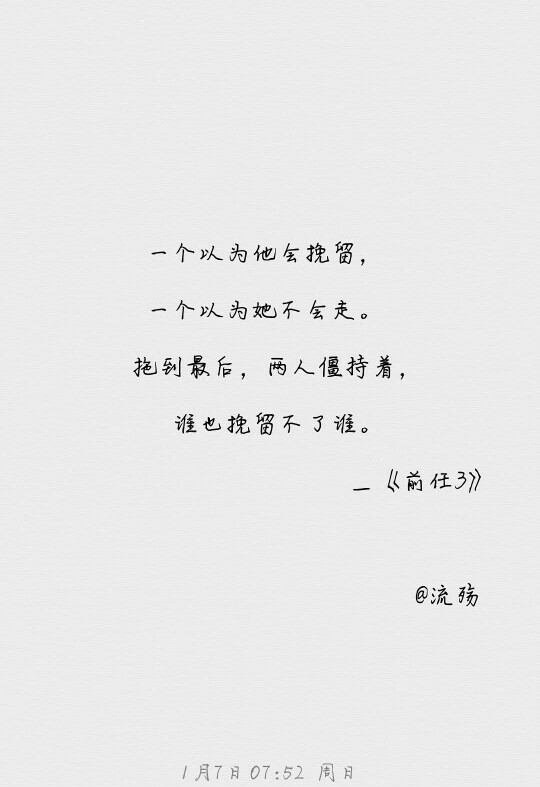 一个以为他会挽留，
一个以为她不会走。
拖到最后，两人僵持着，
谁也挽留不了谁。
—《前任3》
@流殇
1月7日 07:52 周日